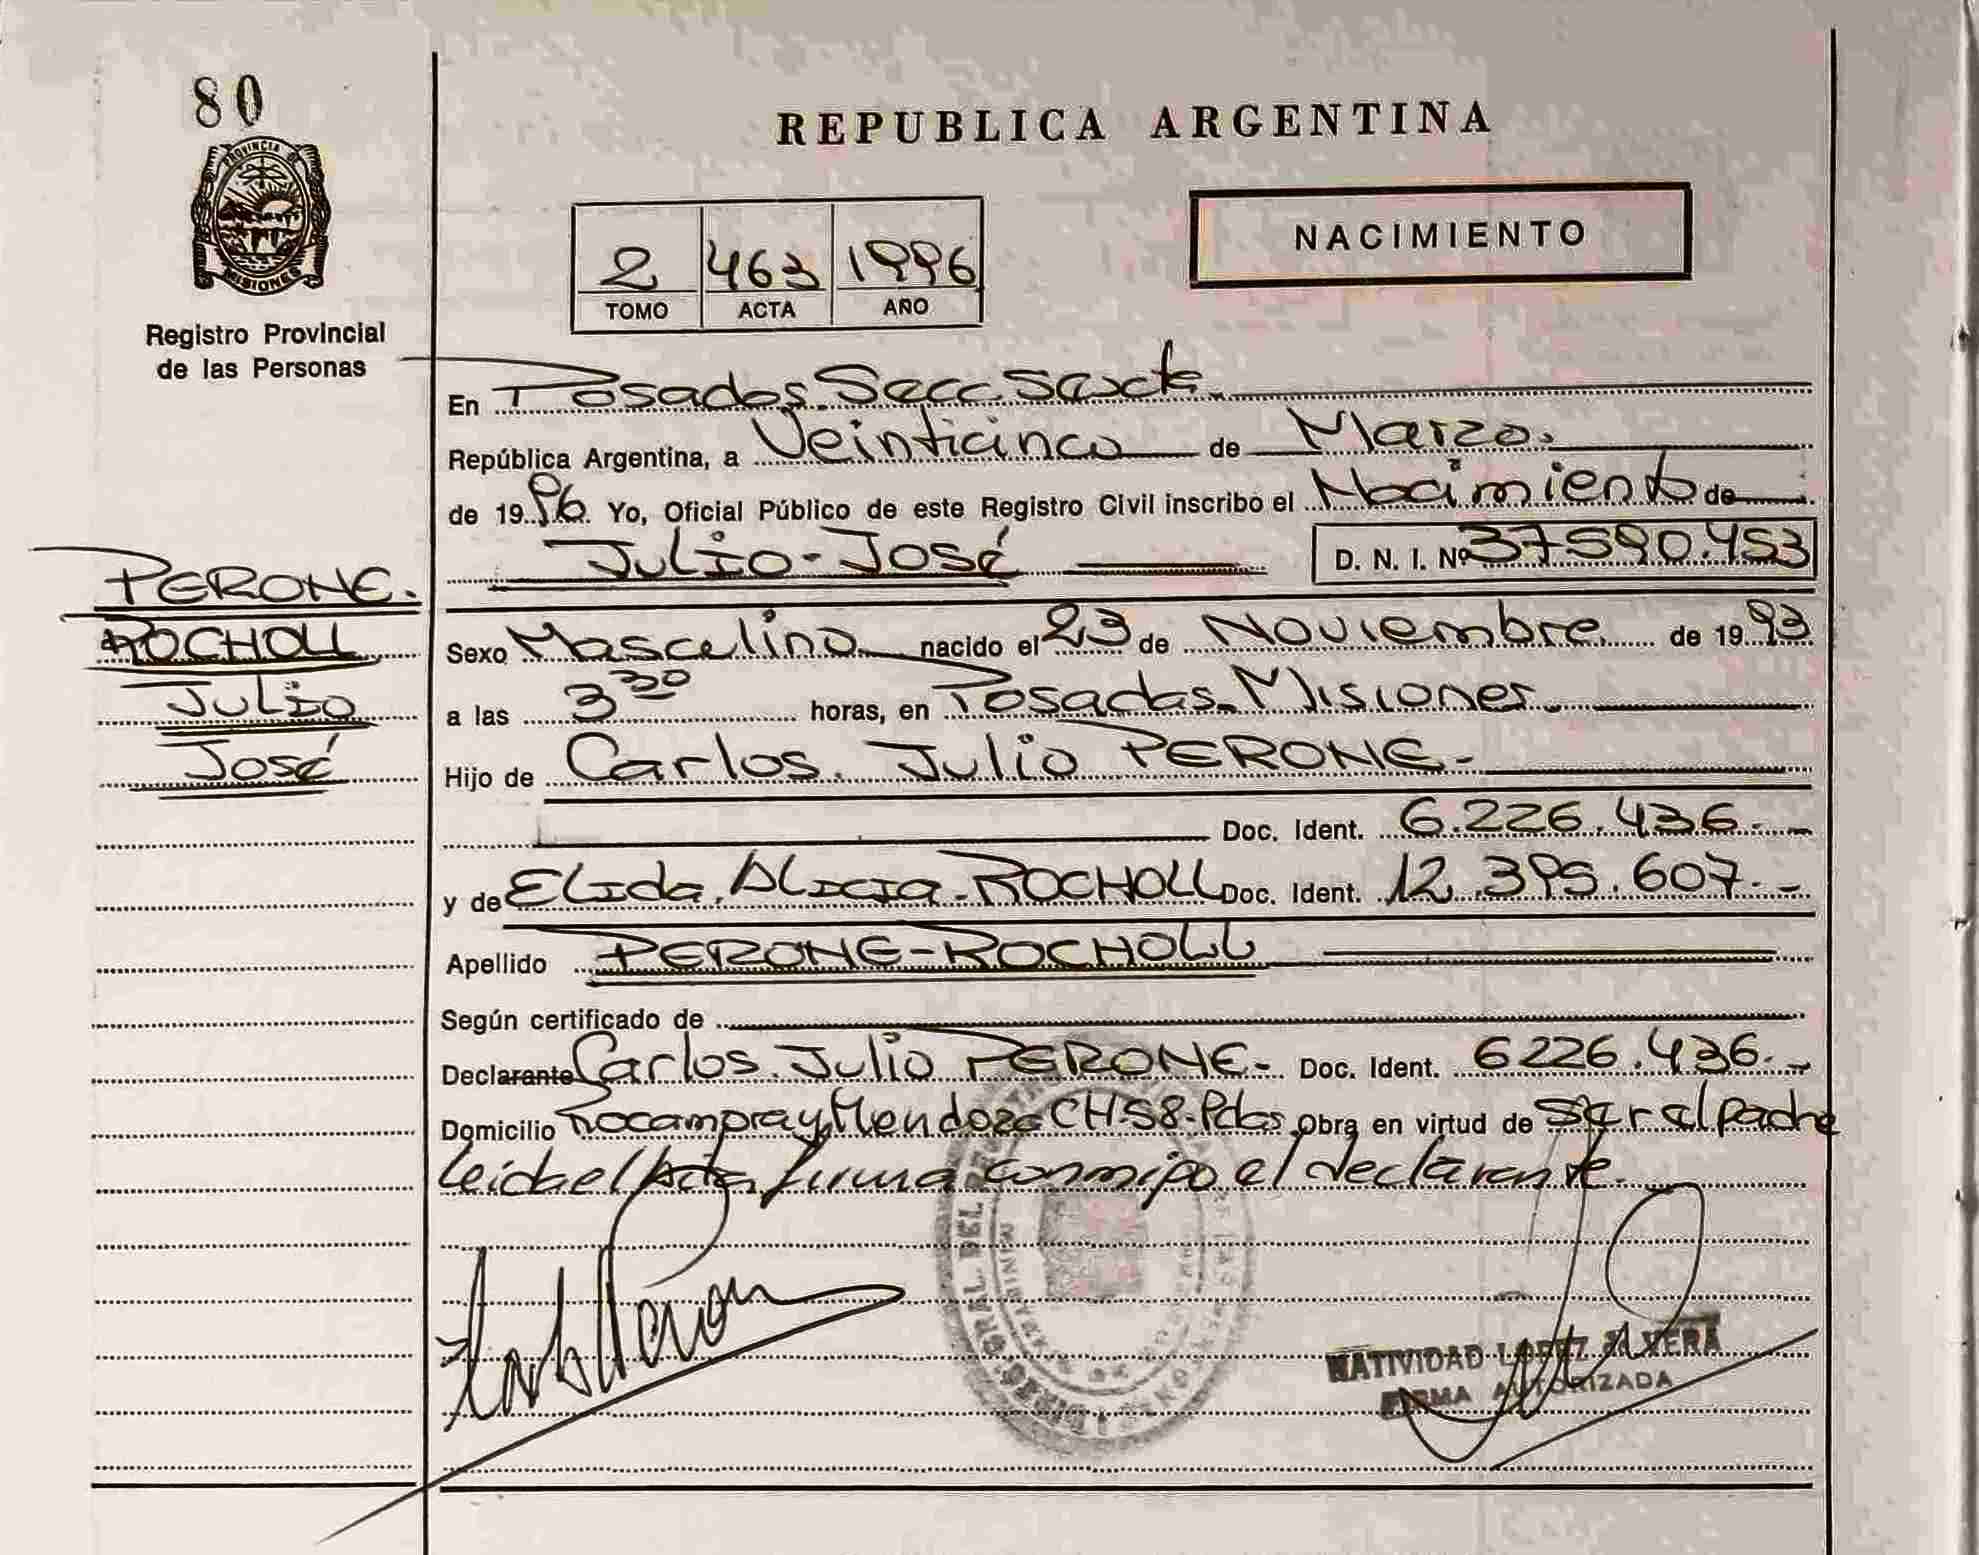 80
PROVINCIA DE
MISIONES
Registro Provincial
de las Personas
REPUBLICA ARGENTINA
2 463 1996
TOMO ACTA AÑO
NACIMIENTO
En Posadas. Secc. Sexta.
República Argentina, a Veinticinco de Marzo.
de 19 96. Yo, Oficial Público de este Registro Civil inscribo el Nacimiento de
Julio-José D. N. I. Nº 37590.453
PERONE.
ROCHOLL
Julio
José
Sexo Masculino nacido el 23 de Noviembre de 19 93
a las 3 30 horas, en Posadas. Misiones.
Hijo de Carlos. Julio PERONE.-
Doc. Ident. 6.226.436.-
y de Elida. Alicia. ROCHOLL Doc. Ident. 12.395.607.-
Apellido PERONE-ROCHOLL
Según certificado de
Declarante Carlos. Julio PERONE.- Doc. Ident. 6226.436.-
Domicilio Rocampra y Mendoza CH-58-Pdas Obra en virtud de Ser el padre
Leida el Acta firma conmigo el declarante.
NATIVIDAD LOPEZ VERA
FIRMA AUTORIZADA